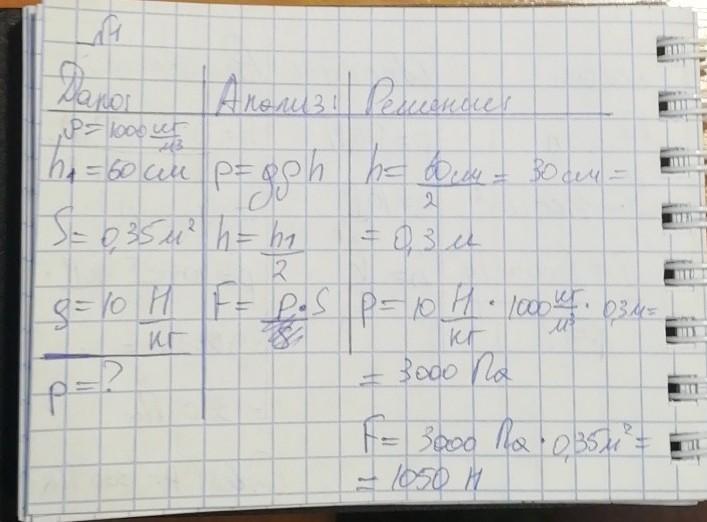 №4
Дано: Анализ: Решение:
ρ = 1000 кг/м³
h₁ = 60 см p = gρh h = 60см/2 = 30 см =
S = 0,35 м² h = h₁/2 = 0,3 м
g = 10 Н/кг F = p · S p = 10 Н/кг · 1000 кг/м³ · 0,3м =
p = ? = 3000 Па
F = 3000 Па · 0,35м² =
= 1050 Н